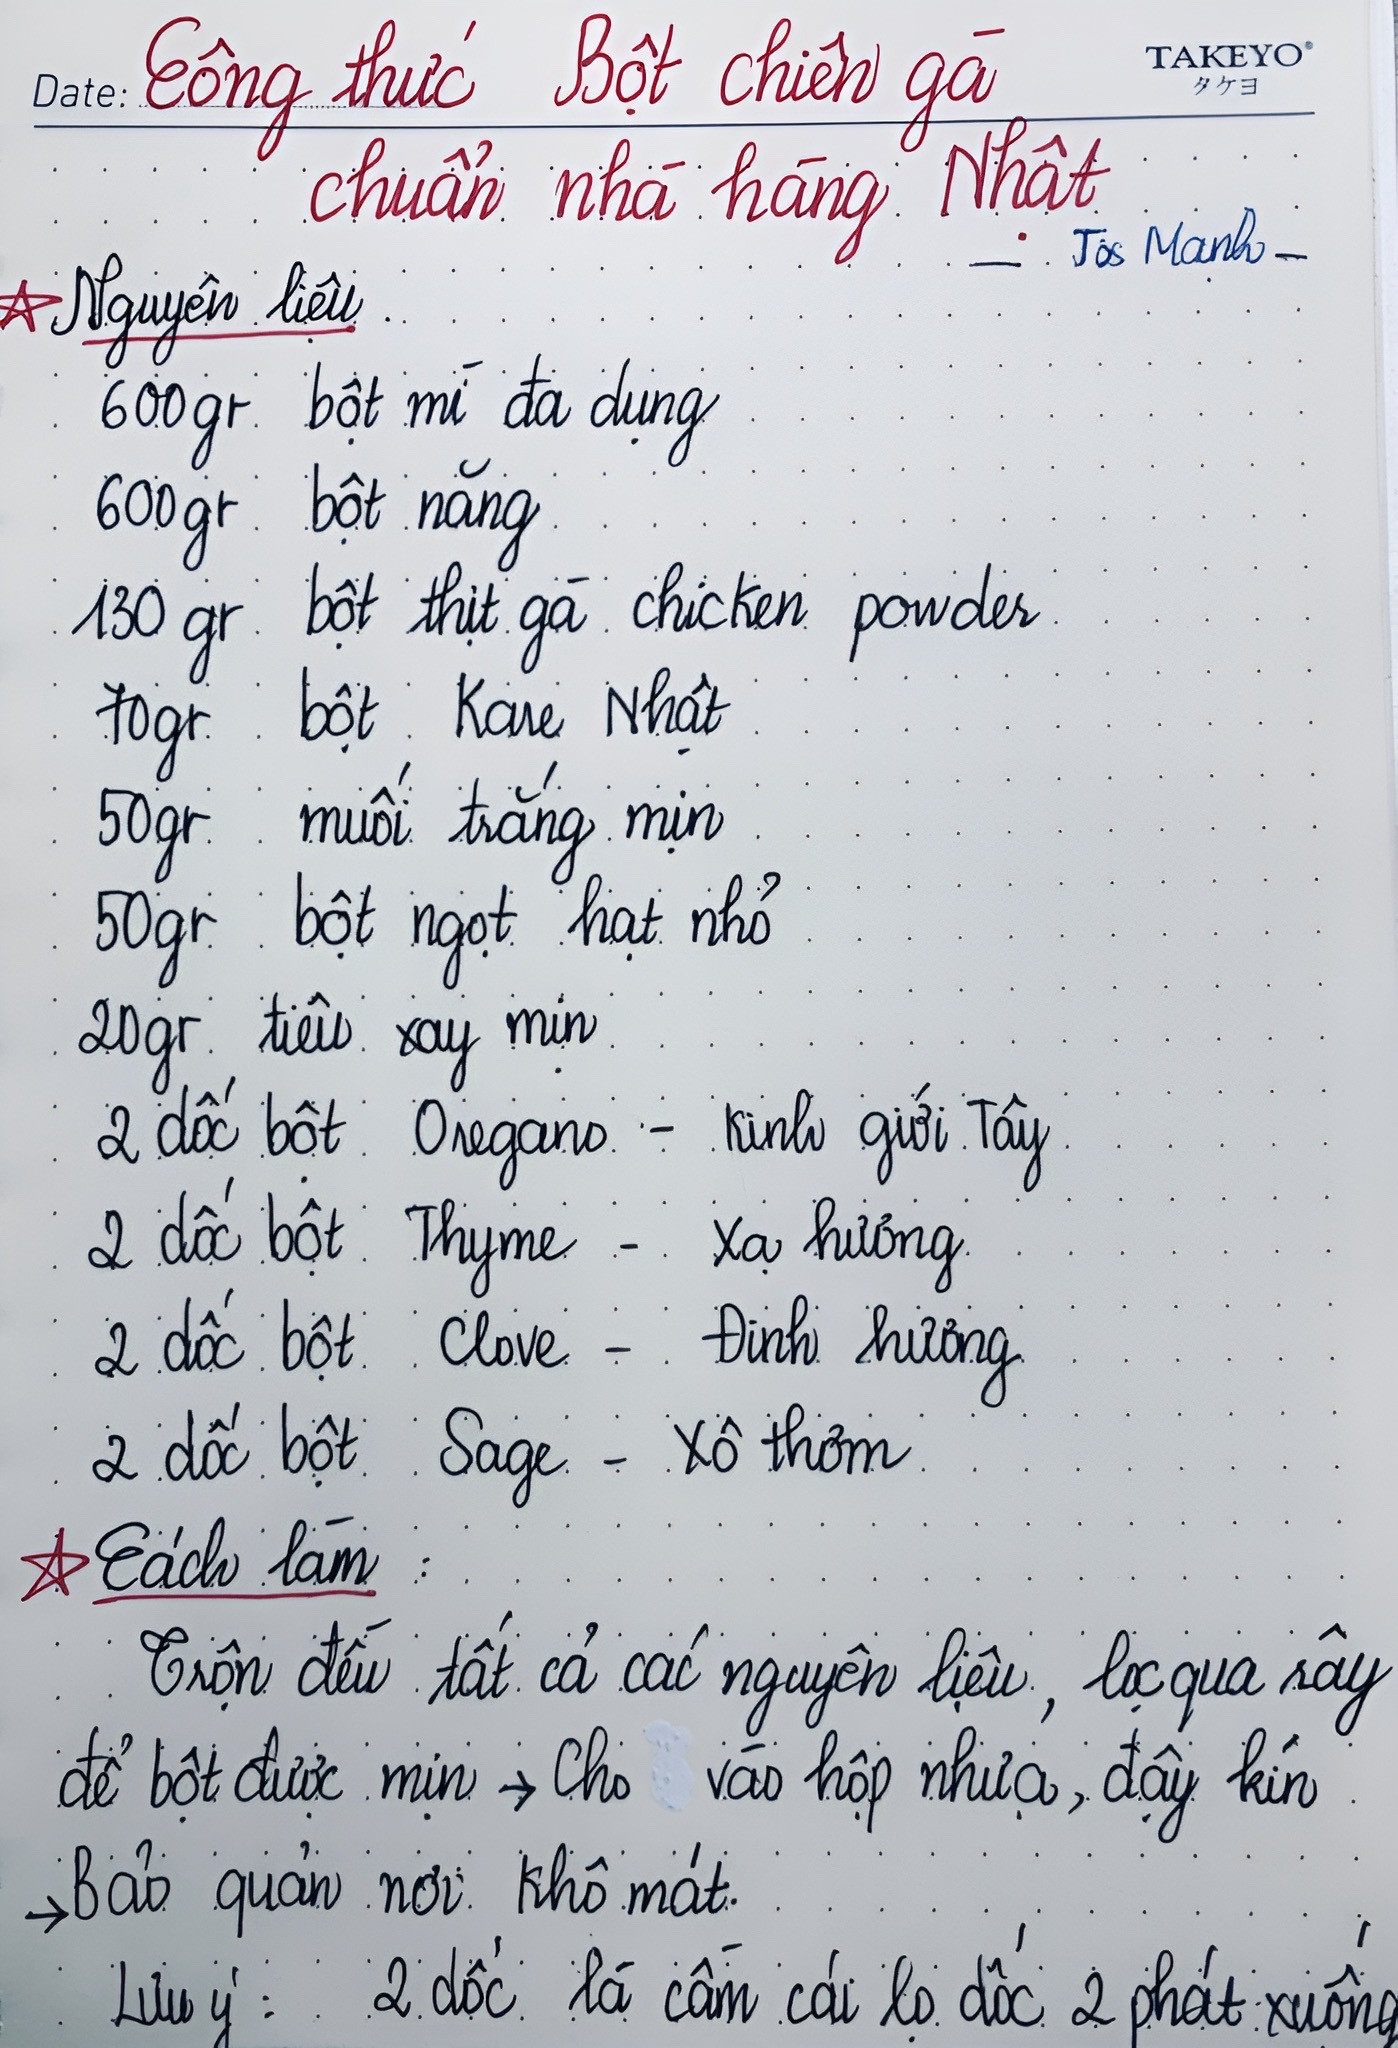 TAKEYO®
タケヨ
Date: Công thức Bột chiên gà
chuẩn nhà hàng Nhật
— Jos Mạnh —
Nguyên liệu
600gr bột mì đa dụng
600gr bột năng
130gr bột thịt gà chicken powder
70gr bột Kare Nhật
50gr muối trắng mịn
50gr bột ngọt hạt nhỏ
20gr tiêu xay mịn
2 dốc bột Oregano - Kinh giới Tây
2 dốc bột Thyme - Xạ hương
2 dốc bột Clove - Đinh hương
2 dốc bột Sage - Xô thơm
Cách làm :
Trộn đều tất cả các nguyên liệu, lọc qua rây
để bột được mịn → Cho vào hộp nhựa, đậy kín
→ Bảo quản nơi khô mát.
Lưu ý : 2 dốc là cầm cái lọ dốc 2 phát xuống